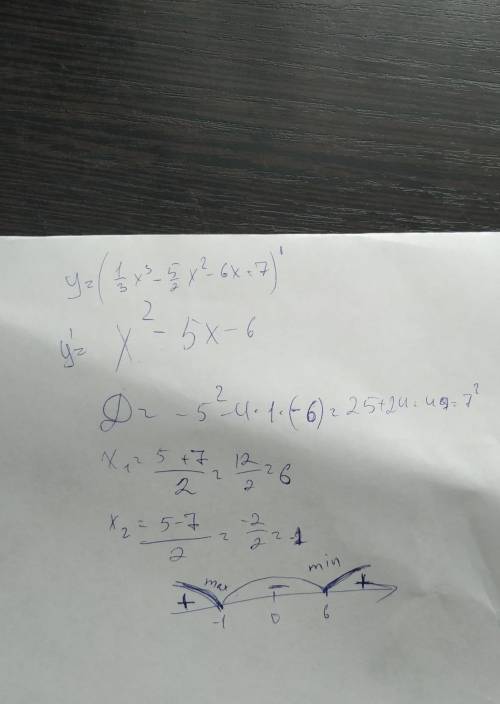 y=(1/3 x³ - 5/2 x² - 6x = 7)'
y' = x² - 5x - 6
D = -5² - 4·1·(-6) = 25+24 = 49 = 7²
x₁ = (5+7)/2 = 12/2 = 6
x₂ = (5-7)/2 = -2/2 = -1
max min
+ - +
-1 0 6